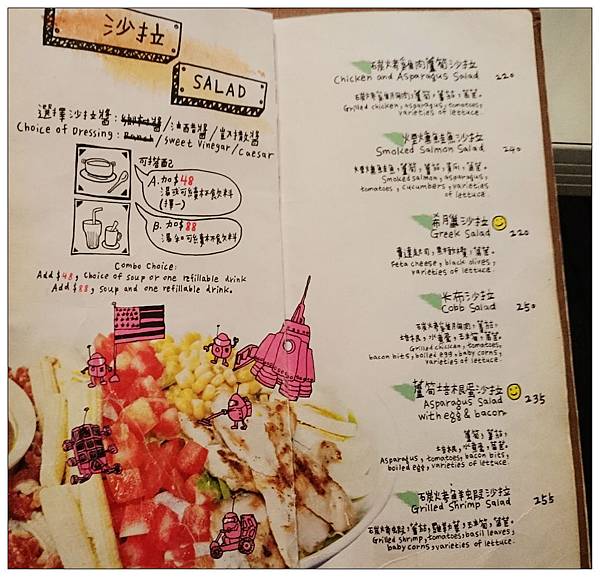 沙拉
SALAD
選擇沙拉醬：油醋醬/凱撒醬
Choice of Dressing: Ranch/Sweet Vinegar/Caesar
可搭配
A. 加$48
湯或可續杯飲料
(擇一)
B. 加$88
湯和可續杯飲料
Combo Choice:
Add $48, choice of soup or one refillable drink
Add $88, soup and one refillable drink.
碳烤雞肉蘆筍沙拉
Chicken and Asparagus Salad 220
碳烤雞胸肉，蘆筍，蕃茄，萵苣。
Grilled chicken, asparagus, tomatoes,
varieties of lettuce.
煙燻鮭魚沙拉
Smoked Salmon Salad 240
煙燻鮭魚，蘆筍，蕃茄，黃瓜，萵苣。
Smoked salmon, asparagus,
tomatoes, cucumbers, varieties
of lettuce.
希臘沙拉
Greek Salad 220
費達起司，黑橄欖，萵苣。
Feta cheese, black olives,
varieties of lettuce.
米布沙拉
Cobb Salad 250
碳烤雞胸肉，蕃茄，
培根，水煮蛋，玉米筍，萵苣。
Grilled chicken, tomatoes,
bacon bits, boiled egg, baby corns,
varieties of lettuce.
蘆筍培根蛋沙拉
Asparagus Salad
with egg & bacon 235
蘆筍，蕃茄，
培根，水煮蛋，萵苣。
Asparagus, tomatoes, bacon bits,
boiled egg, varieties of lettuce.
碳烤鮮蝦沙拉
Grilled Shrimp Salad 255
碳烤鮮蝦，蕃茄，羅勒葉，玉米筍，萵苣。
Grilled shrimp, tomatoes, basil leaves,
baby corns, varieties of lettuce.